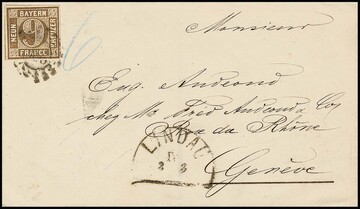 BAYERN
NEUN
KREUZER
FRANCO
6
Monsieur
Eug. Andeoud
chez Mr Fred Andeoud & Co
Rue du Rhône
Genève
LINDAU
2 3